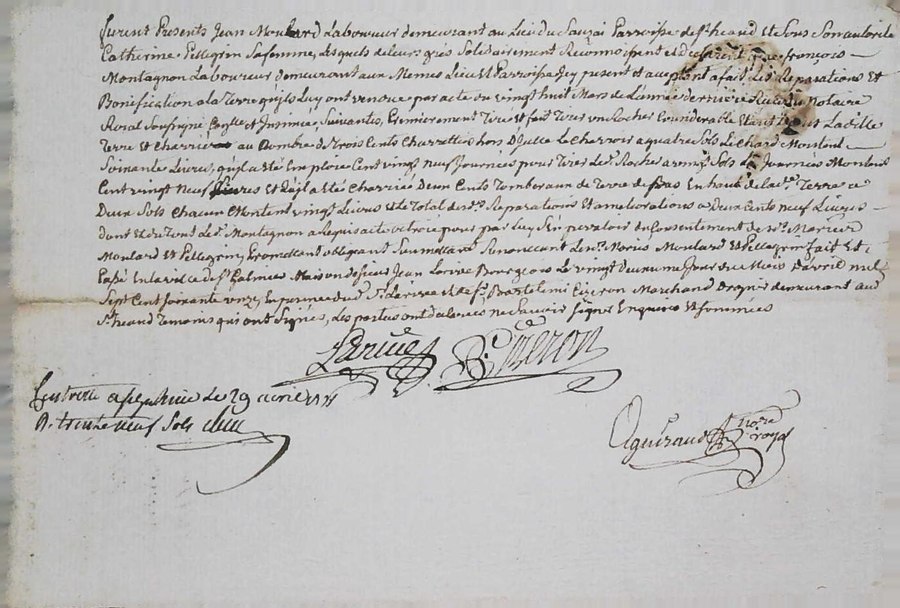 furent Presents Jean Moulard Laboureur demeurant au Lieu du Sauzai Parroisse de st heand Et sous son autorité
Catherine Pellegrin sa femme, desquels de leurs grés solidairement Reconnoissent et que françois
Montagnon Laboureur demeurant aux Memes Lieu et Parroisse Icy present et acceptent a fait Les Reparations Et
Bonification a la Terre qu'ils Luy ont vendue par acte du vingt huit Mars de L'année derniere Notaire
Royal soussigné et suivantes, Premierement Tiré et fait Tirer un Rocher Considerable
Terre Et Charrié au Nombre de trois Cents Charrettes hors D'Icelle Le Charroir a quatre sols Le Montent
Soixante Livres, qu'il a Eté Emploié Cent vingt neuf Journées pour Tirer Led. Rocher a vingt sols Journées Montent
Cent vingt Neuf Livres Et qu'il a Eté Charrié Deux Cents Tombereaux de Terre de Bas En haut de lad.e Terre a
Deux sols Chacun Montent vingt Livres et Le Total desd. Reparations Et ameliorations a Deux Cents Neuf Livres
dont et du tout Led. Montagnon a Requis acte octroié pour par Luy s'En prevaloir du Consentement desd. Mariés
Moulard Et Pellegrin, Promettant obligeant Soumettant Renonceant Lesd. Mariés Moulard Et Pellegrin fait Et
Passé En la ville de st Galmier Maison de sieur Jean Larive Bourgeois Le vingt deuxieme Jour du Mois D'avril mil
Sept Cent soixante onze, En presence dud. sr Larive Et de sr Bartelemi Marchand Drapier demeurant aud.
st heand Temoins qui ont signés, Les parties ont declarées ne scavoir signer Enquises Et sommées
Larive
B.
a le 29 avril
R. trente neuf sols
Aguiraud nore royal